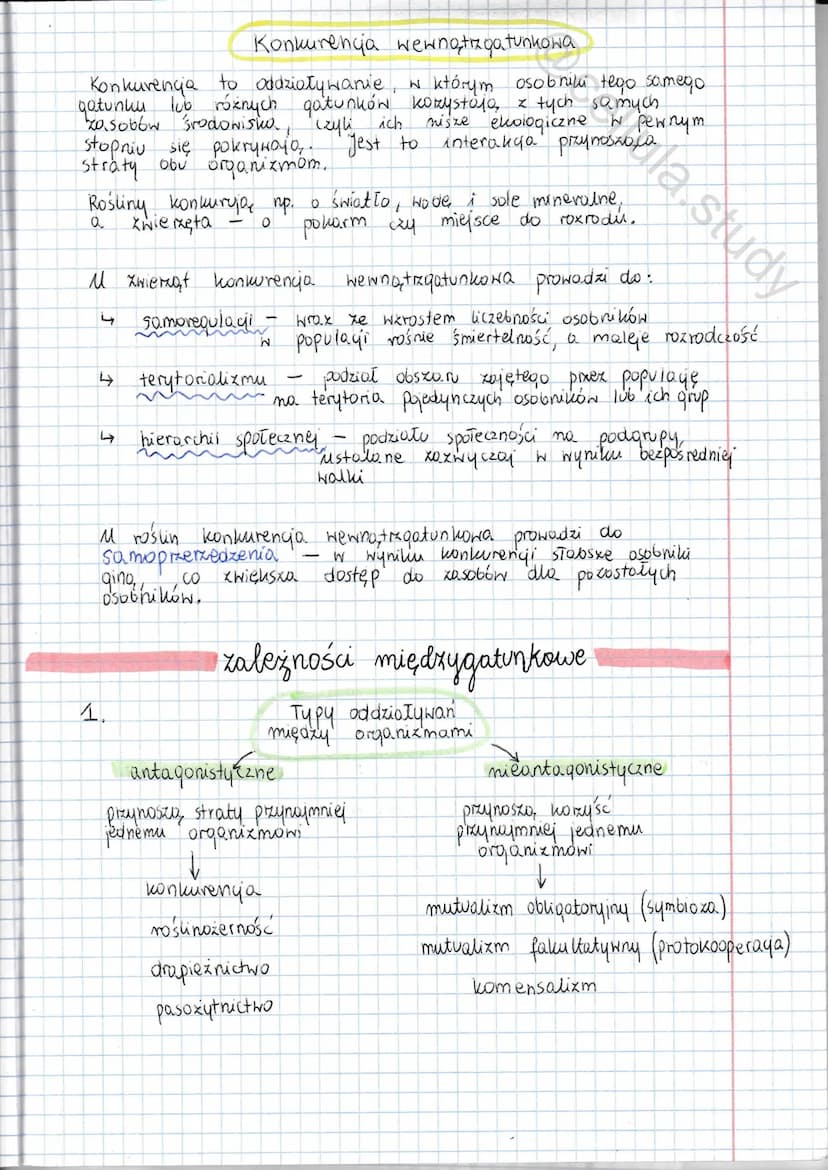 Konkurencja wewnątrzgatunkowa
Konkurencja to oddziaływanie, w którym osobniki tego samego
gatunku lub różnych gatunków korzystają z tych samych
zasobów środowiska, czyli ich nisze ekologiczne w pewnym
stopniu się pokrywają. Jest to interakcja przynosząca
straty obu organizmom.
Rośliny konkurują np. o światło, wodę i sole mineralne,
a zwierzęta – o pokarm czy miejsce do rozrodu.
U zwierząt konkurencja wewnątrzgatunkowa prowadzi do:
↳ samoregulacji – wraz ze wzrostem liczebności osobników
w populacji rośnie śmiertelność, a maleje rozrodczość
↳ terytorializmu – podział obszaru zajętego przez populację
na terytoria pojedynczych osobników lub ich grup
↳ hierarchii społecznej – podziału społeczności na podgrupy,
ustalane zazwyczaj w wyniku bezpośredniej
walki
U roślin konkurencja wewnątrzgatunkowa prowadzi do
samoprzerzedzenia – w wyniku konkurencji słabsze osobniki
giną, co zwiększa dostęp do zasobów dla pozostałych
osobników.
zależności międzygatunkowe
1. Typy oddziaływań
między organizmami
antagonistyczne
przynoszą straty przynajmniej
jednemu organizmowi
↓
konkurencja
roślinożerność
drapieżnictwo
pasożytnictwo
nieantagonistyczne
przynoszą korzyść
przynajmniej jednemu
organizmowi
↓
mutualizm obligatoryjny (symbioza)
mutualizm fakultatywny (protokooperacja)
komensalizm
@cellula.study